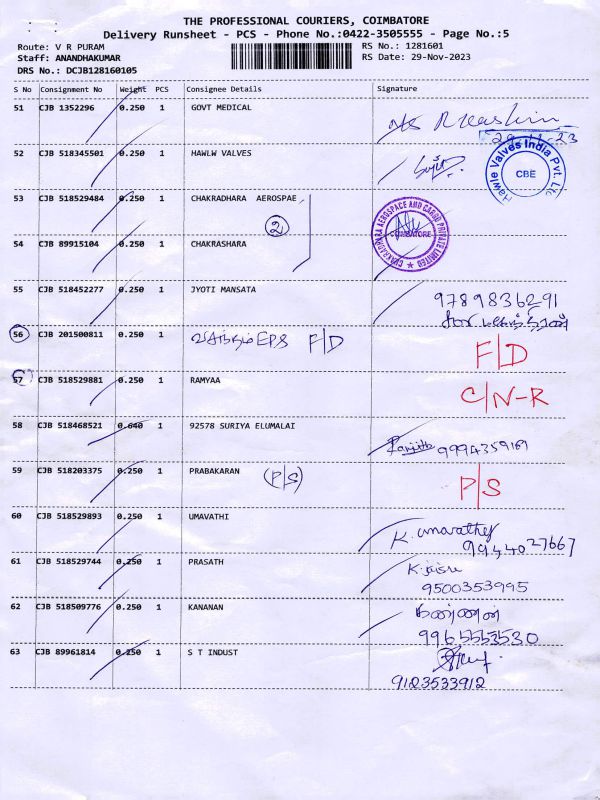 THE PROFESSIONAL COURIERS, COIMBATORE
Delivery Runsheet - PCS - Phone No.:0422-3505555 - Page No.:5
Route: V R PURAM RS No.: 1281601
Staff: ANANDHAKUMAR RS Date: 29-Nov-2023
DRS No.: DCJB128160105
S No Consignment No Weight PCS Consignee Details Signature
51 CJB 1352296 0.250 1 GOVT MEDICAL
29-11-23
52 CJB 518345501 0.250 1 HAWLW VALVES
Hawle Valves India Pvt. Ltd.
CBE
53 CJB 518529484 0.250 1 CHAKRADHARA AEROSPAE
2
CHAKRADHARA AEROSPACE AND CARGO PRIVATE LIMITED
COIMBATORE
54 CJB 89915104 0.250 1 CHAKRASHARA
55 CJB 518452277 0.250 1 JYOTI MANSATA 9789836291
56 CJB 201500811 0.250 1 EPS F/D F/D
57 CJB 518529881 0.250 1 RAMYAA C/N-R
58 CJB 518468521 0.640 1 92578 SURIYA ELUMALAI
Ranjith 9994359169
59 CJB 518203375 0.250 1 PRABAKARAN (P/S) P/S
60 CJB 518529893 0.250 1 UMAVATHI K. umavathy
9944027667
61 CJB 518529744 0.250 1 PRASATH K. jaisre
9500353995
62 CJB 518509776 0.250 1 KANANAN கண்ணன்
9965553530
63 CJB 89961814 0.250 1 S T INDUST
9123533912